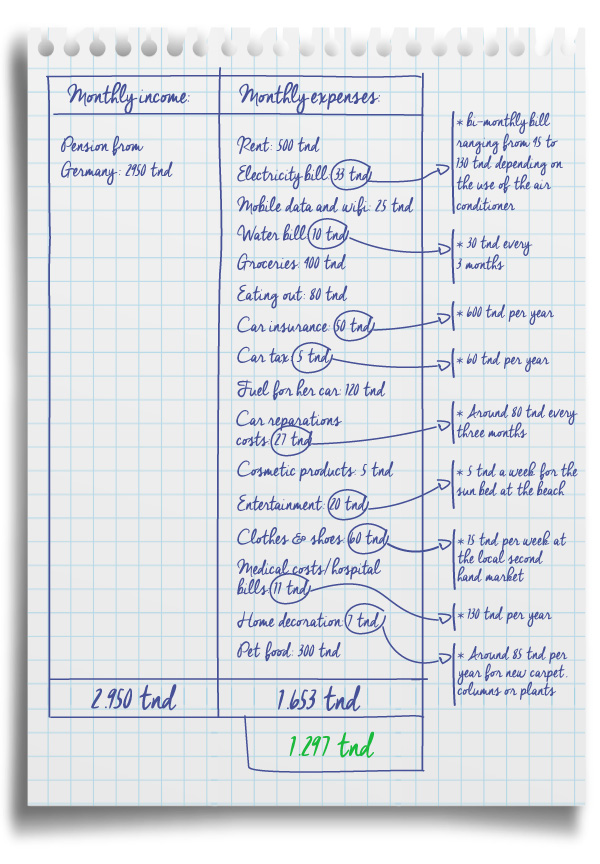 Monthly income:
Pension from
Germany: 2950 tnd
2.950 tnd
Monthly expenses:
Rent: 500 tnd
Electricity bill: 33 tnd
Mobile data and wifi: 25 tnd
Water bill: 10 tnd
Groceries: 400 tnd
Eating out: 80 tnd
Car insurance: 50 tnd
Car tax: 5 tnd
Fuel for her car: 120 tnd
Car reparations
costs: 27 tnd
Cosmetic products: 5 tnd
Entertainment: 20 tnd
Clothes & shoes: 60 tnd
Medical costs/hospital
bills: 11 tnd
Home decoration: 7 tnd
Pet food: 300 tnd
1.653 tnd
1.297 tnd
* bi-monthly bill
ranging from 45 to
130 tnd depending on
the use of the air
conditioner
* 30 tnd every
3 months
* 600 tnd per year
* 60 tnd per year
* Around 80 tnd every
three months
* 5 tnd a week for the
sun bed at the beach
* 15 tnd per week at
the local second
hand market
* 130 tnd per year
* Around 85 tnd per
year for new carpet,
columns or plants